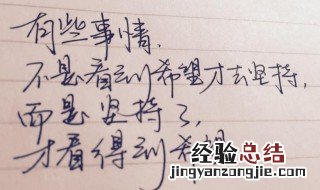 有些事情，
不是看到希望才去坚持，
而是坚持了，
才看得到希望
经验总结
jingyanzongjie.com